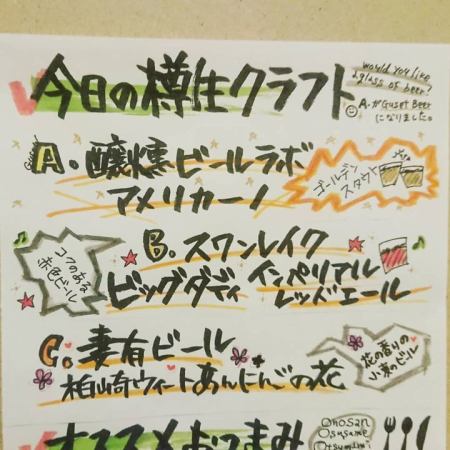 今日の樽生クラフト
would you like
a glass of beer?
A.がGuset Beer
になりました。
A.醸燻ビールラボ
アメリカーノ
ゴールデン
スタウト
B.スワンレイク
ビッグダディ
インペリアル
レッドエール
コクのある
赤色ビール
C.妻有ビール
柏崎ウィートあんにんごの花
花の香りの
小麦のビール
オススメおつまみ
Onosan
Osusume
Otsumami